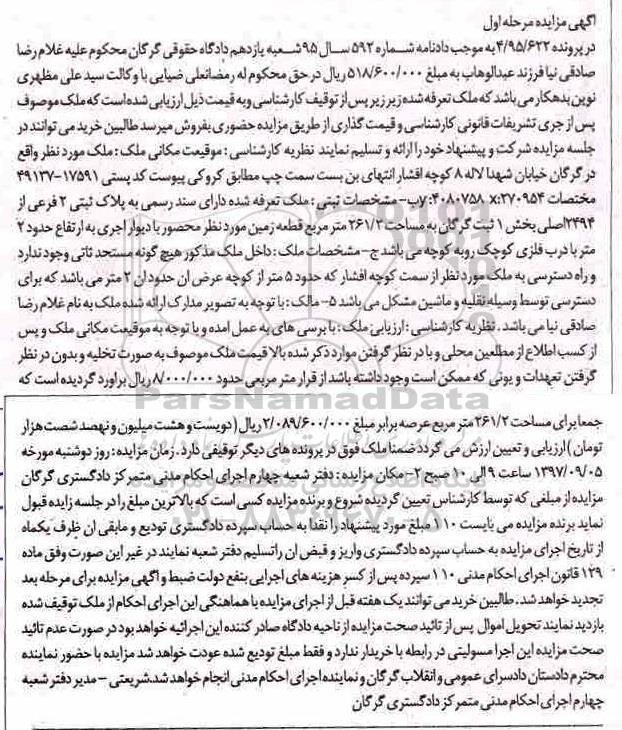 آگهی مزایده مرحله اول
در پرونده ۴/۹۵/۶۲۲ به موجب دادنامه شماره ۵۹۲ سال ۹۵ شعبه یازدهم دادگاه حقوقی گرگان محکوم علیه غلام رضا
صادقی نیا فرزند عبدالوهاب به مبلغ ۵۱۸/۶۰۰/۰۰۰ ریال در حق محکوم له رمضانعلی ضیایی با وکالت سید علی مظهری
نوین بدهکار می باشد که ملک تعرفه شده زیر زیر پس از توقیف کارشناسی و به قیمت ذیل ارزیابی شده است که ملک موصوف
پس از جری تشریفات قانونی کارشناسی و قیمت گذاری از طریق مزایده حضوری بفروش میرسد طالبین خرید می توانند در
جلسه مزایده شرکت و پیشنهاد خود را ارائه و تسلیم نمایند نظریه کارشناسی : موقیعت مکانی ملک : ملک مورد نظر واقع
در گرگان خیابان شهدا لاله ۸ کوچه افشار انتهای بن بست سمت چپ مطابق کروکی پیوست کد پستی ۱۷۵۹۱-۴۹۱۳۷
مختصات x:۲۷۰۹۵۴ y:۴۰۸۰۷۵۸ ب- مشخصات ثبتی : ملک تعرفه شده دارای سند رسمی به پلاک ثبتی ۲ فرعی از
۲۴۹۴اصلی بخش ۱ ثبت گرگان به مساحت ۲۶۱/۲ متر مربع قطعه زمین مورد نظر محصور با دیوار اجری به ارتفاع حدود ۲
متر با درب فلزی کوچک رو به کوچه می باشد ج- مشخصات ملک : داخل ملک مذکور هیچ گونه مستحد ثاتی وجود ندارد
و راه دسترسی به ملک مورد نظر از سمت کوچه افشار که حدود ۵ متر از کوچه عرض ان حدود ان ۲ متر می باشد که برای
دسترسی توسط وسیله نقلیه و ماشین مشکل می باشد ۵- مالک : با توجه به تصویر مدارک ارائه شده ملک به نام غلام رضا
صادقی نیا می باشد . نظریه کارشناسی : ارزیابی ملک : با برسی های به عمل امده و با توجه به موقیعت مکانی ملک و پس
از کسب اطلاع از مطلعین محلی و با در نظر گرفتن موارد ذکر شده بالا قیمت ملک موصوف به صورت تخلیه و بدون در نظر
گرفتن تعهدات و یونی که ممکن است وجود داشته باشد از قرار متر مربعی حدود ۸/۰۰۰/۰۰۰ ریال براورد گردیده است که
جمعا برای مساحت ۲۶۱/۲ متر مربع عرصه برابر مبلغ ۲/۰۸۹/۶۰۰/۰۰۰ ریال ( دویست و هشت میلیون و نهصد شصت هزار
تومان ) ارزیابی و تعیین ارزش می گردد ضمنا ملک فوق در پرونده های دیگر توقیفی دارد . زمان مزایده : روز دوشنبه مورخه
۱۳۹۷/۰۹/۰۵ ساعت ۹ الی ۱۰ صبح ۲- مکان مزایده : دفتر شعبه چهارم اجرای احکام مدنی متمرکز دادگستری گرگان
مزایده از مبلغی که توسط کارشناس تعیین گردیده شروع و برنده مزایده کسی است که بالاترین مبلغ را در جلسه زایده قبول
نماید برنده مزایده می بایست ۱۱۰ مبلغ مورد پیشنهاد را نقدا به حساب سپرده دادگستری تودیع و مابقی ان ظرف یکماه
از تاریخ اجرای مزایده به حساب سپرده دادگستری واریز و قبض ان راتسلیم دفتر شعبه نمایند در غیر این صورت وفق ماده
۱۲۹ قانون اجرای احکام مدنی ۱۱۰ سپرده پس از کسر هزینه های اجرایی بنفع دولت ضبط و اگهی مزایده برای مرحله بعد
تجدید خواهد شد . طالبین خرید می توانند یک هفته قبل از اجرای مزایده با هماهنگی این اجرای احکام از ملک توقیف شده
بازدید نمایند تحویل اموال پس از تائید صحت مزایده از ناحیه دادگاه صادر کننده این اجرائیه خواهد بود در صورت عدم تائید
صحت مزایده این اجرا مسولیتی در رابطه با خریدار ندارد و فقط مبلغ تودیع شده عودت خواهد شد مزایده با حضور نماینده
محترم دادستان دادسرای عمومی و انقلاب گرگان و نماینده اجرای احکام مدنی انجام خواهد شد.شریعتی - مدیر دفتر شعبه
چهارم اجرای احکام مدنی متمرکز دادگستری گرگان
ParsNamadData